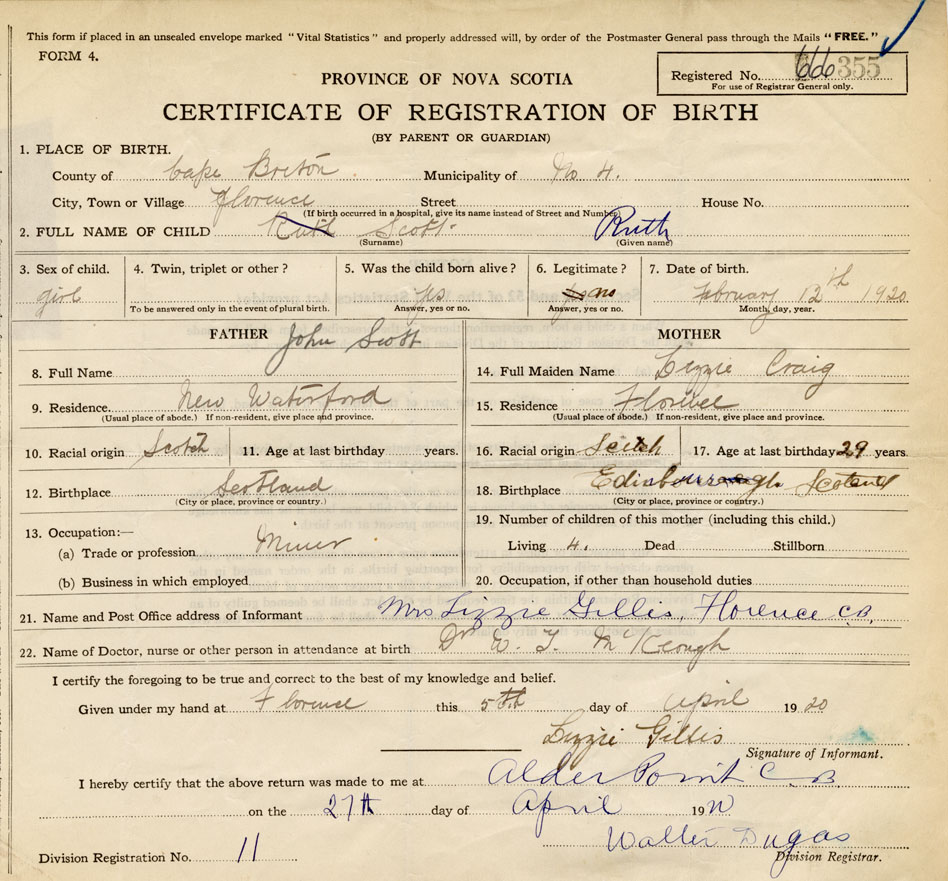 This form if placed in an unsealed envelope marked "Vital Statistics" and properly addressed will, by order of the Postmaster General pass through the Mails "FREE."
FORM 4.
PROVINCE OF NOVA SCOTIA
Registered No. 666355
For use of Registrar General only.
CERTIFICATE OF REGISTRATION OF BIRTH
(BY PARENT OR GUARDIAN)
1. PLACE OF BIRTH.
County of Cape Breton. Municipality of No 4.
City, Town or Village Florence Street House No.
(If birth occurred in a hospital, give its name instead of Street and Number)
2. FULL NAME OF CHILD Ruth Scott Ruth
(Surname) (Given name)
3. Sex of child. 4. Twin, triplet or other? 5. Was the child born alive? 6. Legitimate? 7. Date of birth.
girl yes no February 12th 1920
To be answered only in the event of plural birth. Answer, yes or no. Answer, yes or no. Month, day, year.
FATHER John Scott
8. Full Name
9. Residence New Waterford
(Usual place of abode.) If non-resident, give place and province.
10. Racial origin Scotch 11. Age at last birthday years.
12. Birthplace Scotland
(City or place, province or country.)
13. Occupation:—
(a) Trade or profession Miner
(b) Business in which employed
MOTHER
14. Full Maiden Name Lizzie Craig
15. Residence Florence
(Usual place of abode.) If non-resident, give place and province.
16. Racial origin Scotch 17. Age at last birthday 29 years.
18. Birthplace Edinbourough Scotland
(City or place, province or country.)
19. Number of children of this mother (including this child.)
Living 4. Dead Stillborn
20. Occupation, if other than household duties
21. Name and Post Office address of Informant Mrs Lizzie Gillis, Florence C.B.
22. Name of Doctor, nurse or other person in attendance at birth Dr W. J. McKeough
I certify the foregoing to be true and correct to the best of my knowledge and belief.
Given under my hand at Florence this 5th day of April 1920
Lizzie Gillis
Signature of Informant.
I hereby certify that the above return was made to me at Alder Point C.B.
on the 27th day of April 1920
Walter Dugas
Division Registration No. 11 Division Registrar.